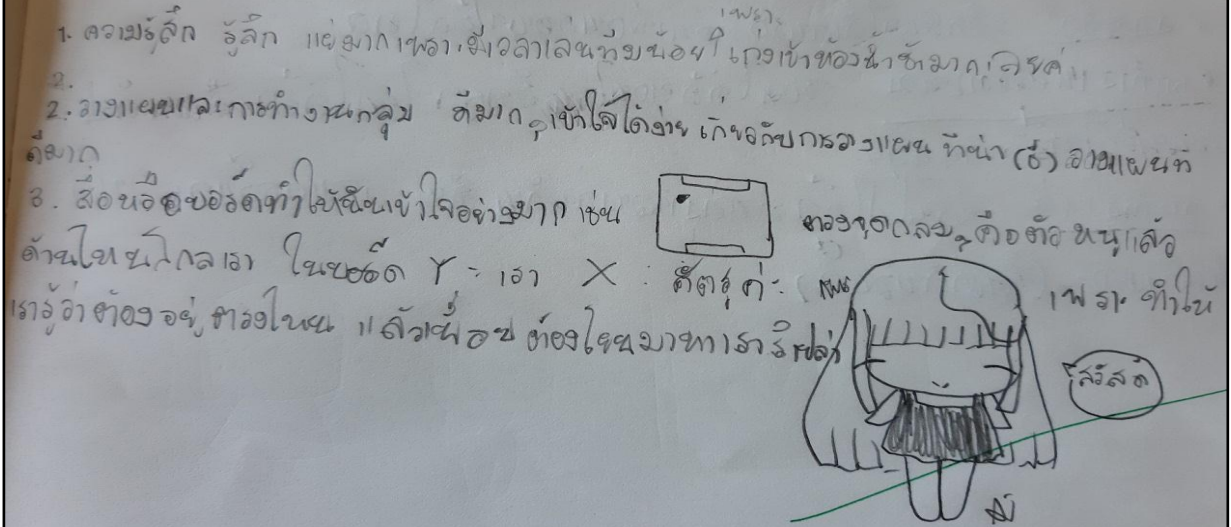 เพราะ
1. ความรู้สึก รู้สึก แย่มากเพราะมีเวลาเล่นทีมน้อย เก่งเข้าห้องน้ำช้ามากเลยค่ะ
2.
2. วางแผนและการทำงานกลุ่ม ดีมาก เข้าใจได้ง่าย เกี่ยวกับการวางแผน วางแผนที่
ดีมาก
3. สื่อหรือบอร์ดทำให้ฉันเข้าใจอย่างมาก เช่น ตรงจุดกลมๆ คือตัวหนูแล้ว
ด้านไหนใกล้เรา ในบอร์ด Y = เรา X : ศัตรูค่ะ เพราะ ทำให้
เรารู้ว่าต้องอยู่ตรงไหน แล้วเพื่อนต้องโยนมาหาเรารึเปล่า
สวัสดี